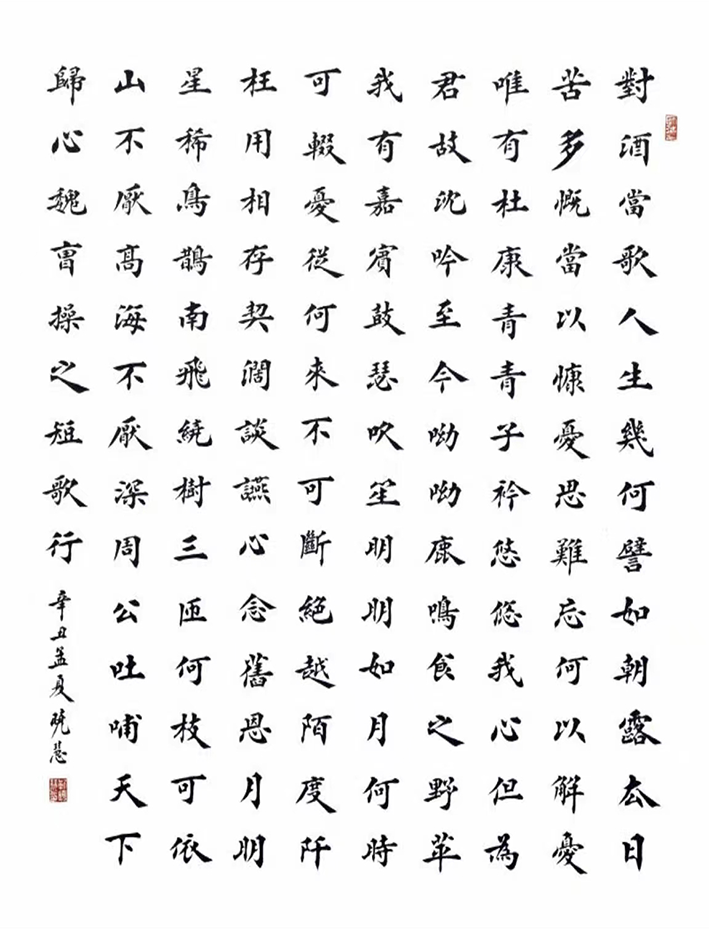 對酒當歌人生幾何譬如朝露去日
苦多慨當以慷憂思難忘何以解憂
唯有杜康青青子衿悠悠我心但為
君故沈吟至今呦呦鹿鳴食之野苹
我有嘉賓鼓瑟吹笙明明如月何時
可輟憂從何來不可斷絕越陌度阡
枉用相存契闊談讌心念舊恩月明
星稀鳥鵲南飛繞樹三匝何枝可依
山不厭高海不厭深周公吐哺天下
歸心魏曹操之短歌行
辛丑孟夏